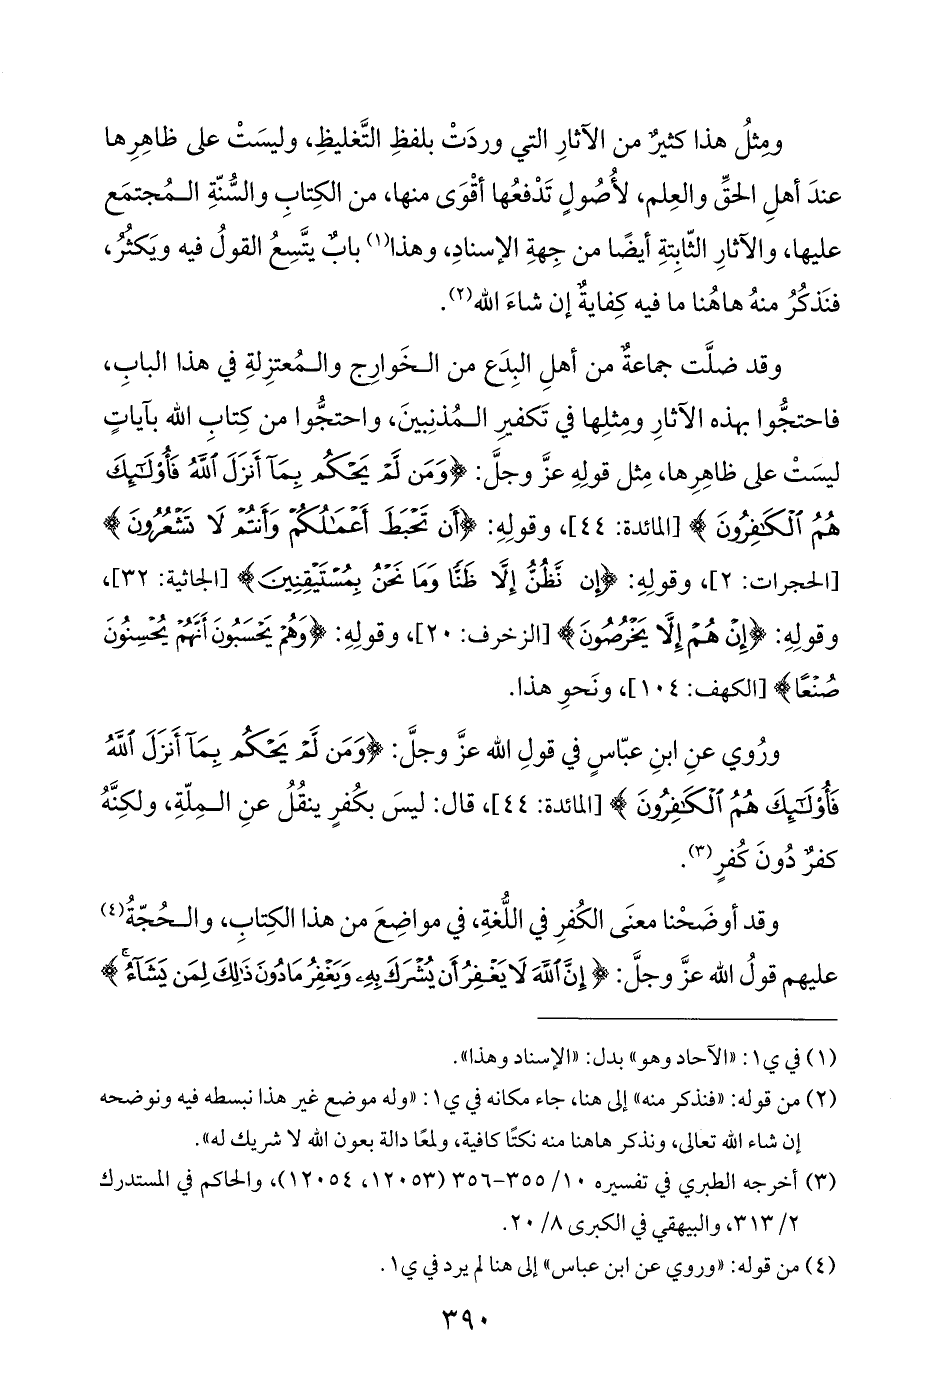 ومِثلُ هذا كثيرٌ من الآثارِ التي وردَتْ بلفظِ التَّغليظِ، وليسَتْ على ظاهِرِها
عندَ أهلِ الحقِّ والعِلم، لأُصُولٍ تَدْفعُها أقْوَى منها، من الكِتابِ والسُّنّةِ الـمُجتمَع
عليها، والآثارِ الثّابِتةِ أيضًا من جِهةِ الإسنادِ، وهذا(١) بابٌ يتَّسِعُ القولُ فيه ويَكثُرُ،
فنَذكُرُ منهُ هاهُنا ما فيه كِفايةٌ إن شاءَ الله(٢).
وقد ضلَّت جماعةٌ من أهلِ البِدَع من الـخَوارِج والـمُعتزِلةِ في هذا البابِ،
فاحتجُّوا بهذه الآثارِ ومِثلِها في تَكفيرِ الـمُذنِبينَ، واحتجُّوا من كِتابِ الله بآياتٍ
ليسَتْ على ظاهِرِها، مِثل قولِهِ عزَّ وجلَّ: ﴿وَمَن لَّمْ يَحْكُم بِمَآ أَنزَلَ ٱللَّهُ فَأُوْلَـٰٓئِكَ
هُمُ ٱلْكَـٰفِرُونَ﴾ [المائدة: ٤٤]، وقولِهِ: ﴿أَن تَحْبَطَ أَعْمَـٰلُكُمْ وَأَنتُمْ لَا تَشْعُرُونَ﴾
[الحجرات: ٢]، وقولِهِ: ﴿إِن نَّظُنُّ إِلَّا ظَنًّا وَمَا نَحْنُ بِمُسْتَيْقِنِينَ﴾ [الجاثية: ٣٢]،
وقولِهِ: ﴿إِنْ هُمْ إِلَّا يَخْرُصُونَ﴾ [الزخرف: ٢٠]، وقولِهِ: ﴿وَهُمْ يَحْسَبُونَ أَنَّهُمْ يُحْسِنُونَ
صُنْعًا﴾ [الكهف: ١٠٤]، ونَحوِ هذا.
ورُوي عنِ ابنِ عبّاسٍ في قولِ الله عزَّ وجلَّ: ﴿وَمَن لَّمْ يَحْكُم بِمَآ أَنزَلَ ٱللَّهُ
فَأُوْلَـٰٓئِكَ هُمُ ٱلْكَـٰفِرُونَ﴾ [المائدة: ٤٤]، قال: ليسَ بكُفرٍ ينقُلُ عنِ الـمِلّةِ، ولكِنَّهُ
كفرٌ دُونَ كُفرٍ(٣).
وقد أوضَحْنا معنَى الكُفرِ في اللُّغةِ، في مواضِعَ من هذا الكِتابِ، والـحُجّةُ(٤)
عليهم قولُ الله عزَّ وجلَّ: ﴿إِنَّ ٱللَّهَ لَا يَغْفِرُ أَن يُشْرَكَ بِهِۦ وَيَغْفِرُ مَا دُونَ ذَٰلِكَ لِمَن يَشَآءُ ۚ﴾
(١) في ي١: «الآحاد وهو» بدل: «الإسناد وهذا».
(٢) من قوله: «فنذكر منه» إلى هنا، جاء مكانه في ي١: «وله موضع غير هذا نبسطه فيه ونوضحه
إن شاء الله تعالى، ونذكر هاهنا منه نكتًا كافية، ولمعًا دالة بعون الله لا شريك له».
(٣) أخرجه الطبري في تفسيره ١٠/ ٣٥٥-٣٥٦ (١٢٠٥٣، ١٢٠٥٤)، والحاكم في المستدرك
٢/ ٣١٣، والبيهقي في الكبرى ٨/ ٢٠.
(٤) من قوله: «وروي عن ابن عباس» إلى هنا لم يرد في ي١.
٣٩٠